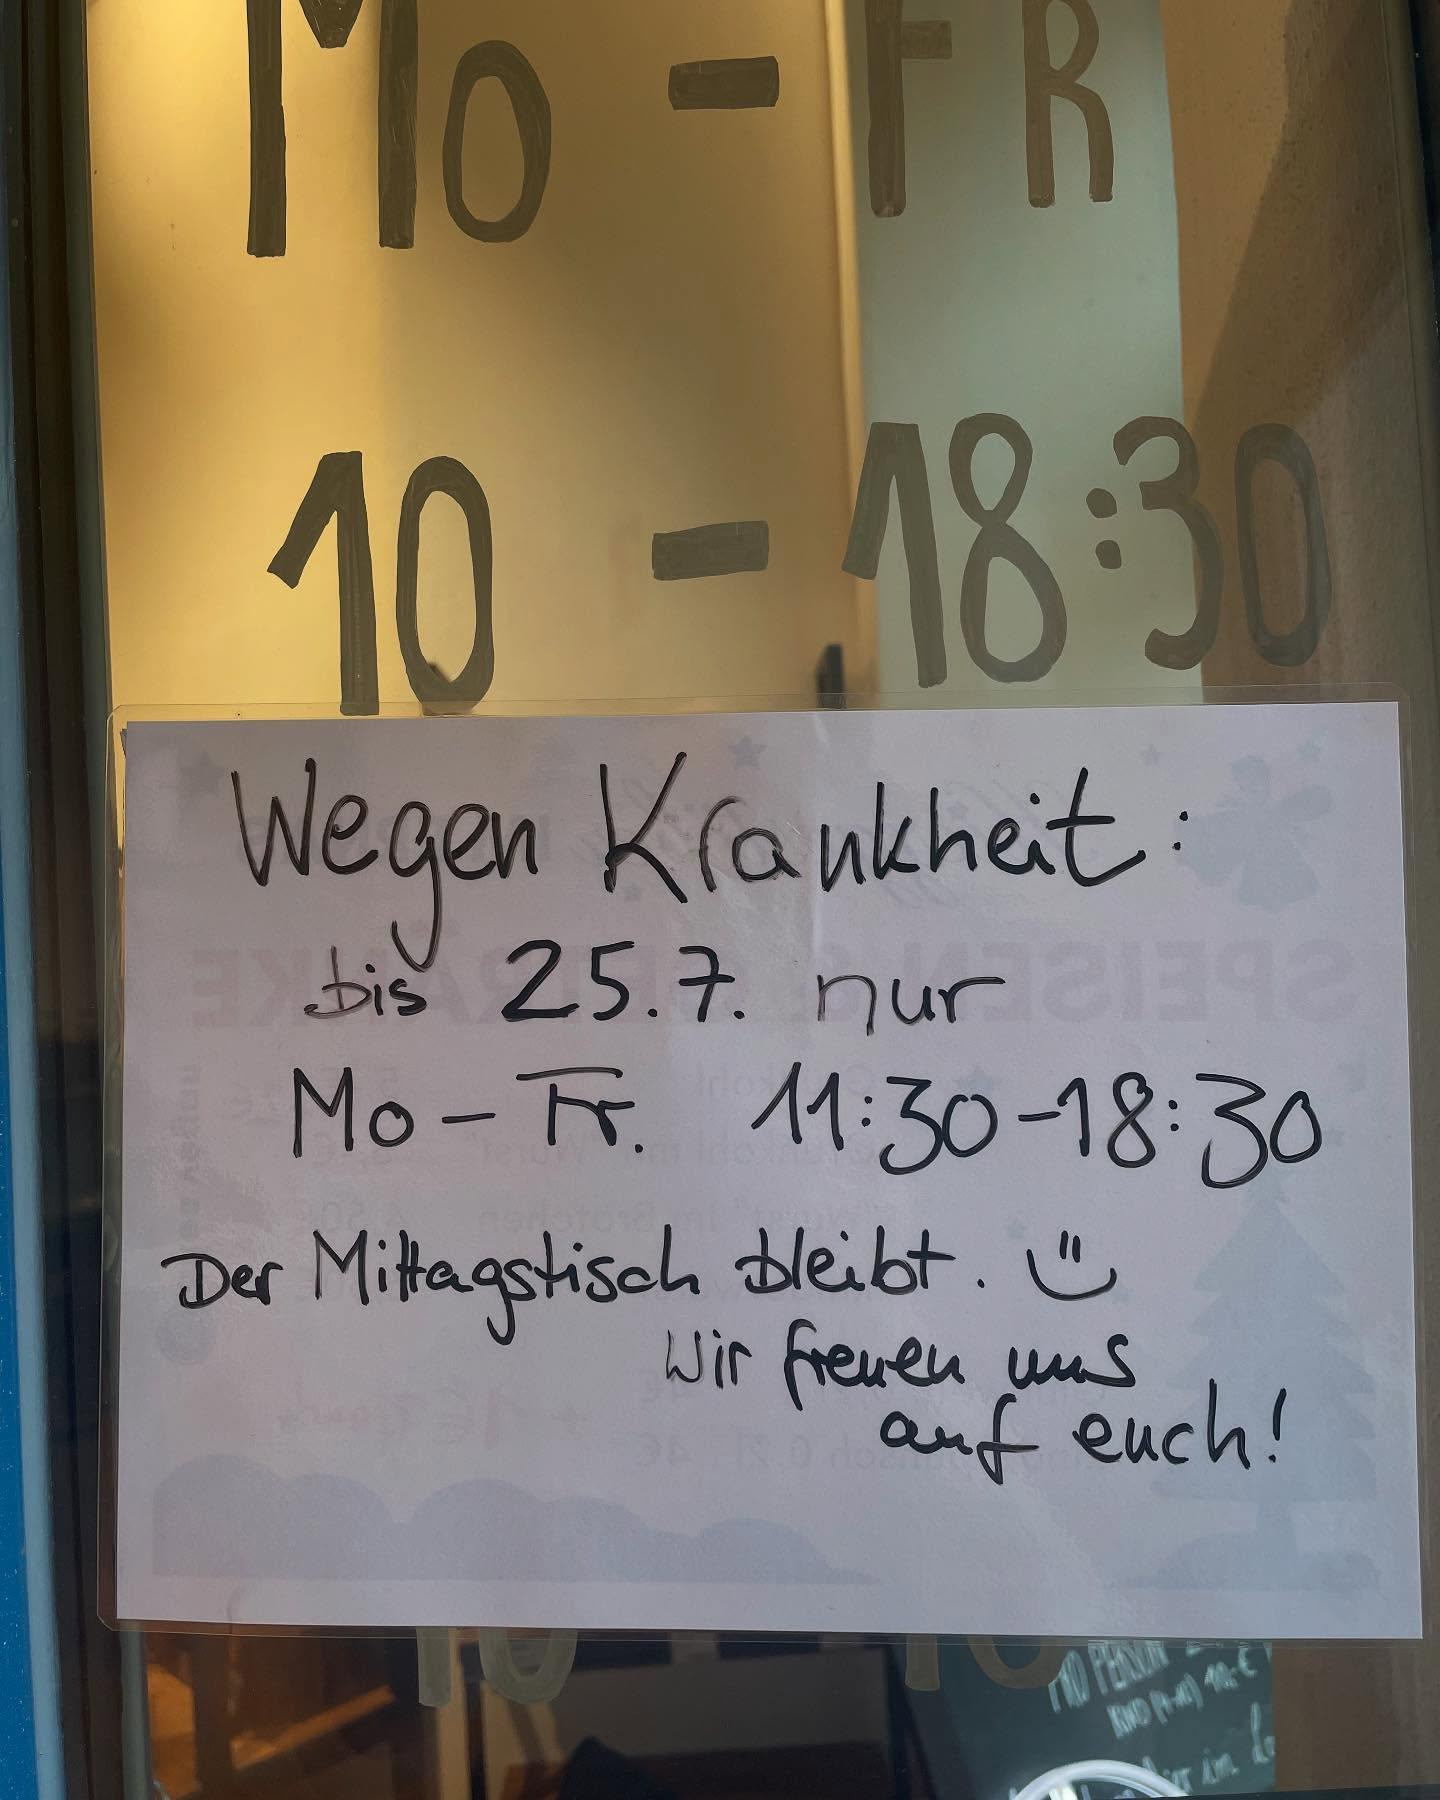 Mo - FR
10 - 18:30
Wegen Krankheit:
bis 25.7. nur
Mo - Fr. 11:30-18:30
Der Mittagstisch bleibt. Ü
Wir freuen uns
auf euch!
SPEISEN & GETRÄNKE
PRO PERSON